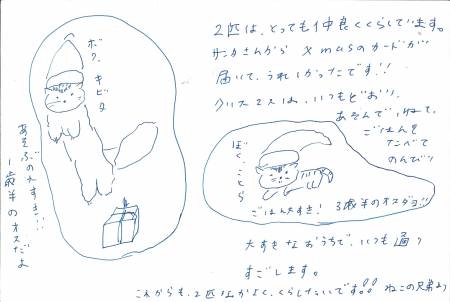 ボク、キビタ
あそぶの大すき!!
1歳半のオスだよ
2匹は、とっても仲良くくらしています。
サンタさんから Xmasのカードが
届いて、うれしかったです!!
クリスマスは、いつもどおり、
あそんで、ねて、
ごはんを
たべて
のんびり
ぼく、ことら
ごはん大すき! 3歳半のオスダヨ!!
大すきなおうちで、いつも通り
すごします。
これからも、2匹なかよく、くらしたいです!! ねこの兄弟より